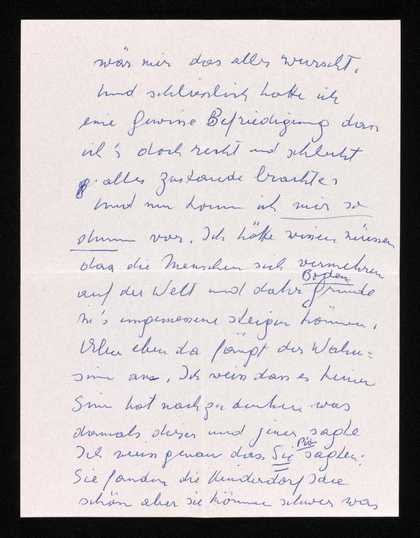 wär mir das alles wurscht.
Und schliesslich hatte ich
eine gewisse Befriedigung dass
ich's doch recht und schlecht
alles zustande brachte
Und nun komm ich mir so
dumm vor. Ich hätte wissen müssen
dass die Menschen sich vermehren
auf der Welt und daher Boden
gründe
in's ungemessene steigen können.
Aber eben da fängt der Wahn-
sinn an. Ich weiss dass es keinen
Sinn hat nachzudenken was
damals dieser und jener sagte
Ich weiss genau dass Sie mir sagten:
Sie fanden die Kinderdorf Idee
schön aber sie können schwer was